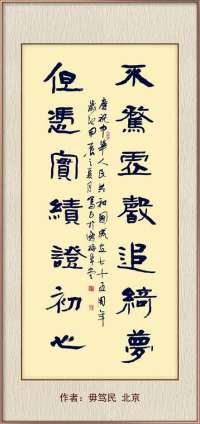 不騖虛聲追綺夢
但憑實績證初心
慶祝中華人民共和國成立七十五周年
歲次甲辰之夏月篤民於
作者：毋笃民 北京